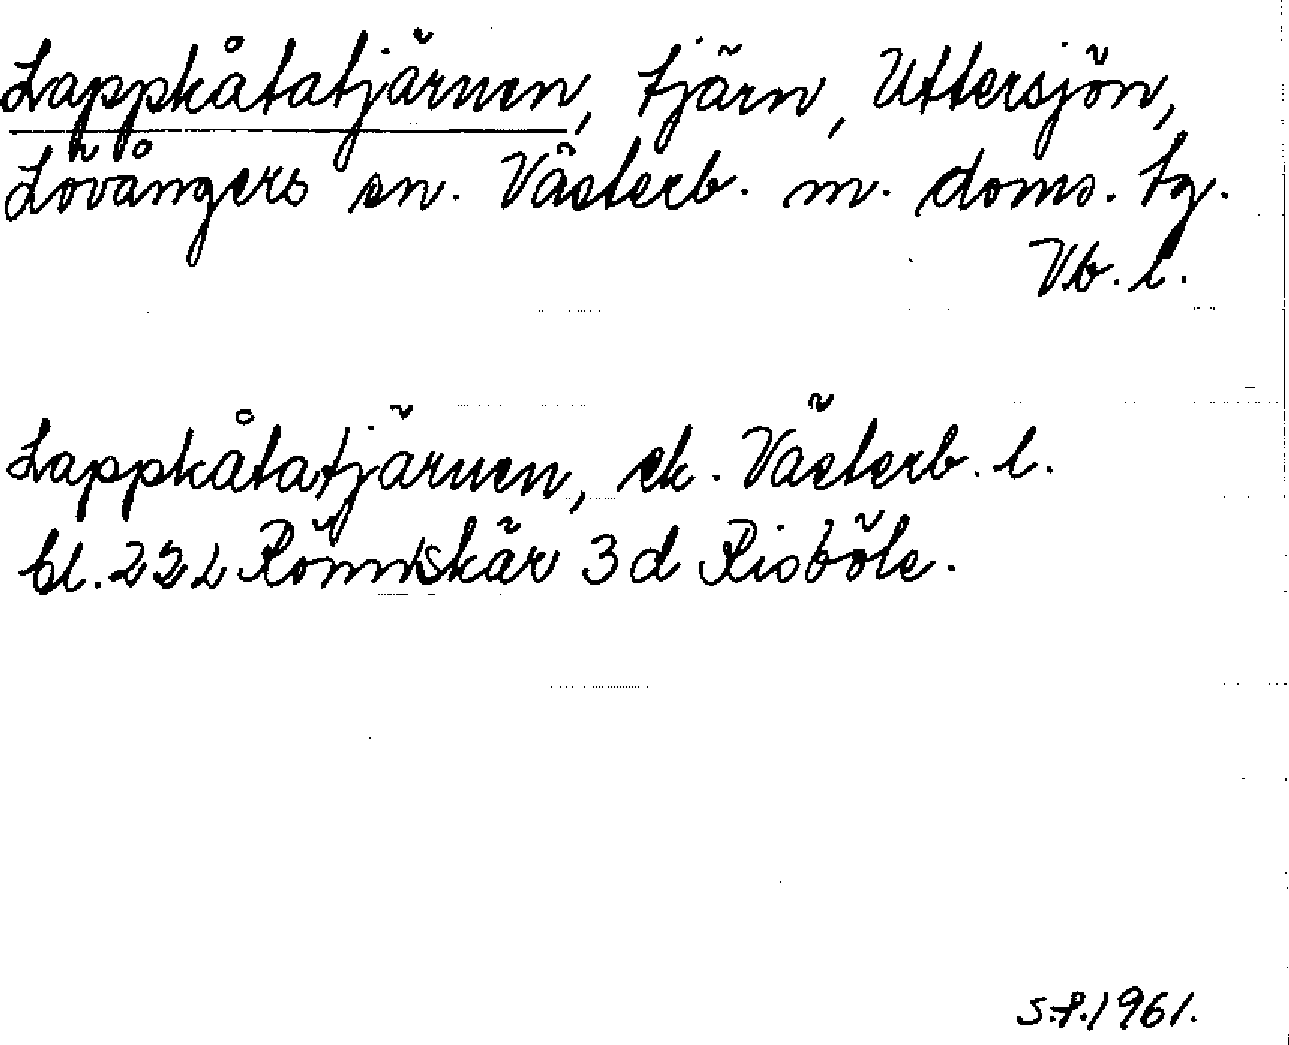 Lappkåtatjärnen, tjärn, Uttersjön,
Lövångers sn. Västerb. m. doms. tg.
Vb. l.
Lappkåtatjärnen, ek. Västerb. l.
bl. 222 Rönnskär 3 d Risböle.
S.P. 1961.